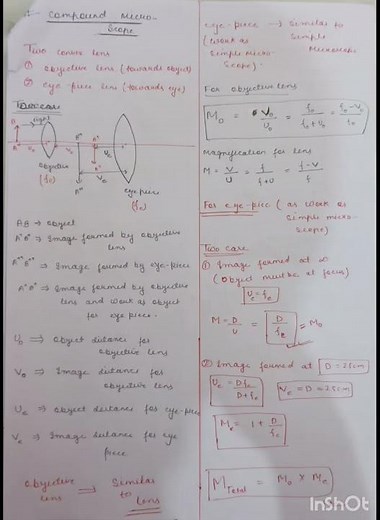 Compound micro-
scope
Two convex lens
① objective lens (towards object)
② eye-piece lens (towards eye)
light
objective
(fo)
eye piece
(fe)
AB ⇒ object
A'B' ⇒ Image formed by objective
lens
A"B" ⇒ Image formed by eye-piece
A'B' ⇒ Image formed by objective
lens and work as object
for eye piece.
Uo ⇒ object distance for
objective lens
Vo ⇒ Image distance for
objective lens
Ue ⇒ object distance for eye-piece
Ve ⇒ Image distance for eye
piece
objective
lens ⟹ Similar
to lens
eye-piece → Similar to
(work as Simple
Simple micro- Microscope
scope)
For objective lens
Mo = Vo/Uo = fo/(fo+Uo) = (fo-Vo)/fo
Magnification for lens
M = V/U = f/(f+U) = (f-V)/f
For eye-piece (as work as
simple micro-
scope)
Two case
① Image formed at ∞
(object must be at focus)
Ue = fe
M = D/U = D/fe = Mo
② Image formed at D = 25cm
Ue = Dfe/(D+fe)
Ve = D = 25cm
Me = 1 + D/fe
MTotal = Mo × Me
InShOt